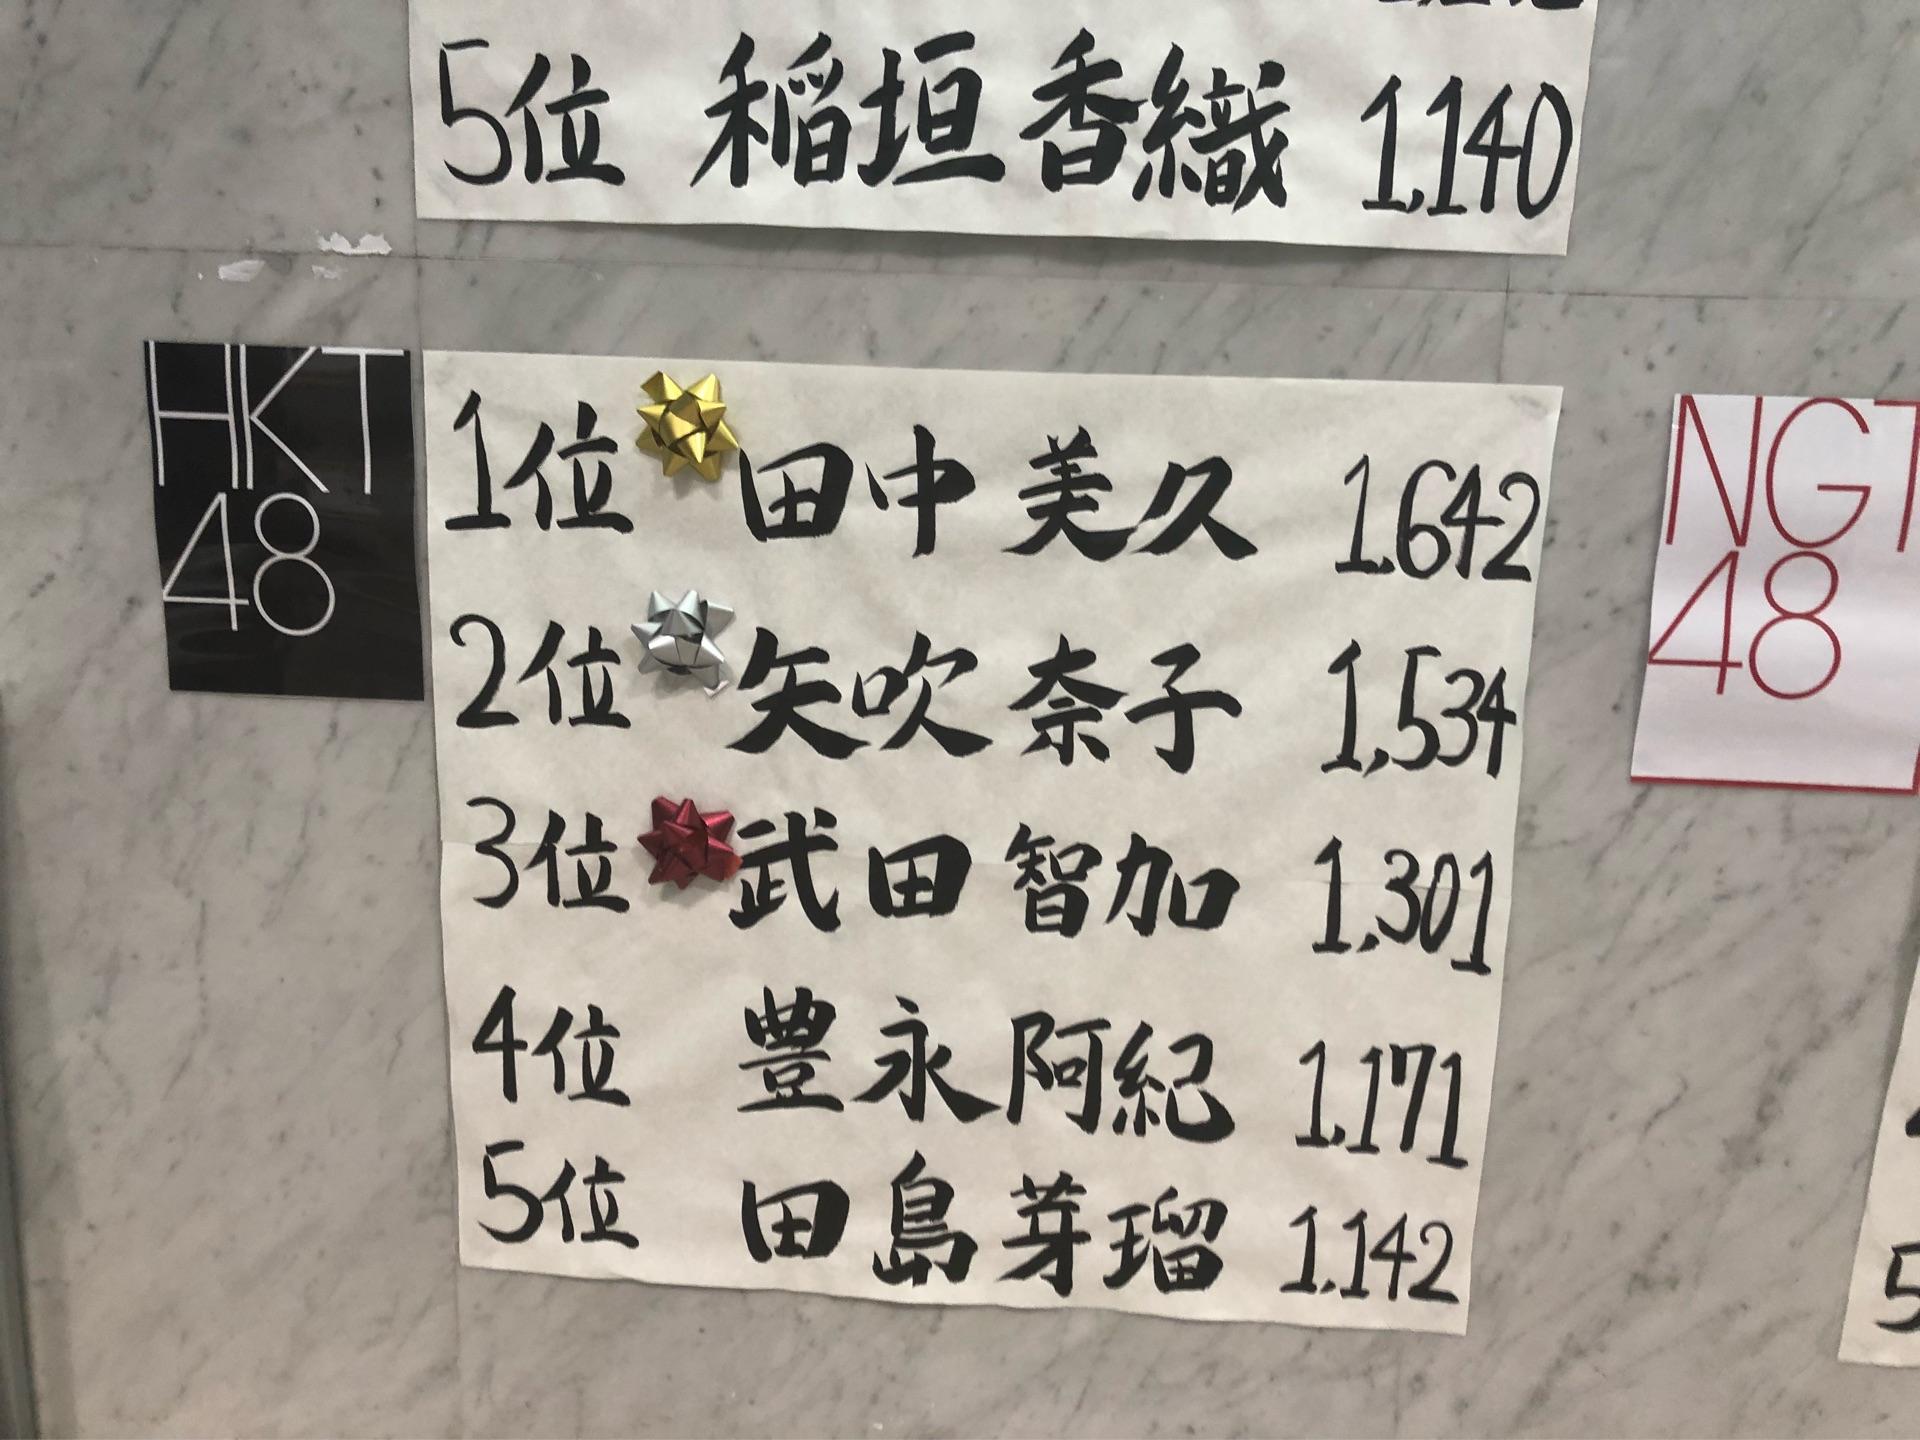 5位 稲垣香織 1,140
HKT
48
1位 田中美久 1,642
2位 矢吹奈子 1,534
3位 武田智加 1,301
4位 豊永阿紀 1,171
5位 田島芽瑠 1,142
NGT
48
5